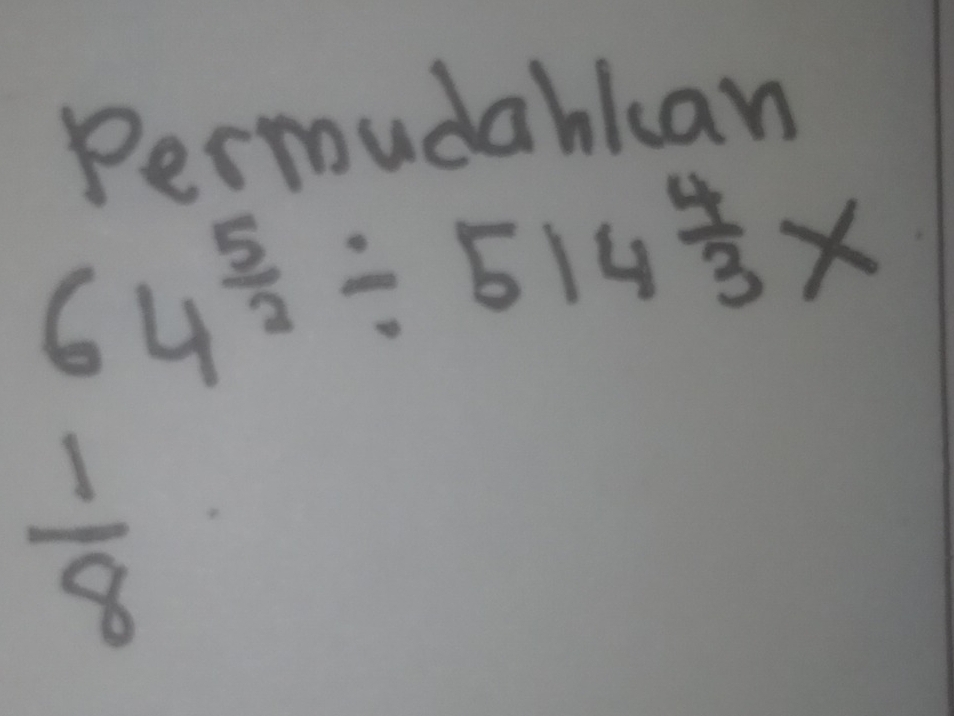 Permudahkan
64^{5/2} ÷ 514^{4/3} ×
1/8